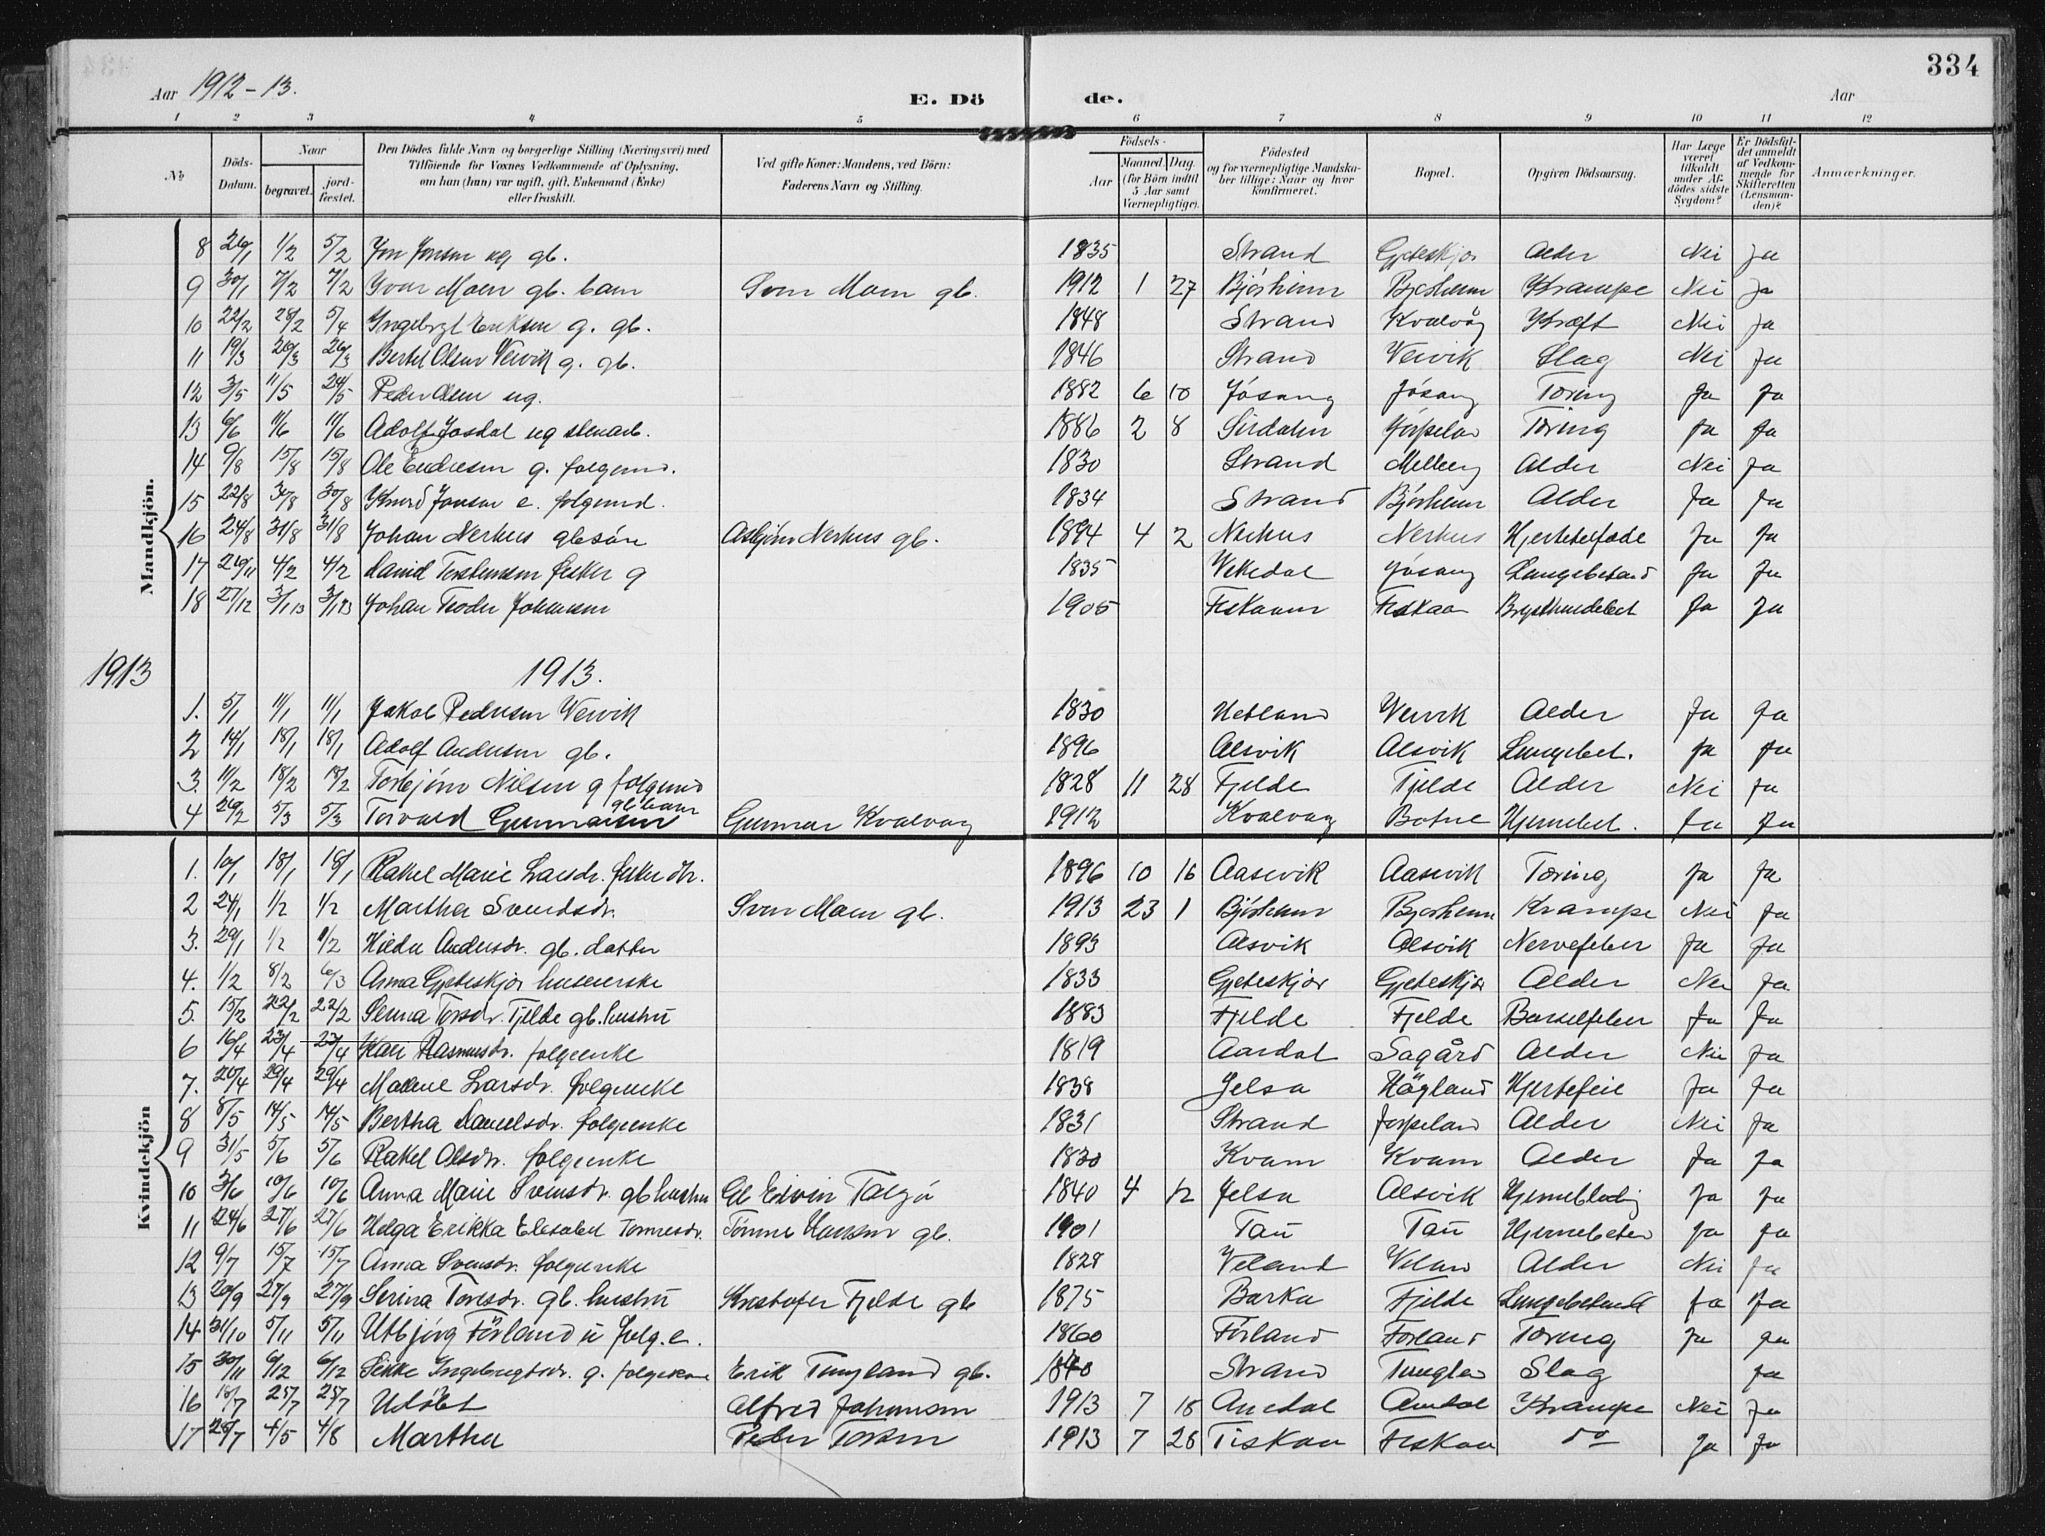 334
Aar 1912-13. E. Dö de. Aar
1 2 3 4 5 6 7 8 9 10 11 12
No Döds-Datum. Naar begravet. jord-fæstet. Den Dödes fulde Navn og borgerlige Stilling (Næringsvei) med Tilföiende for Voxnes Vedkommende af Oplysning, om han (hun) var ugift, gift, Enkemand (Enke) eller fraskilt. Ved gifte Koner: Mandens, ved Börn: Faderens Navn og Stilling. Födsels- Aar Maaned. Dag. (for Börn indtil 5 Aar samt Værnepligtige). Födested og for værnepligtige Mandskaber tillige: Naar og hvor Konfirmeret. Bopæl. Opgiven Dödsaarsag. Har Læge været tilkaldt under Afdödes sidste Sygdom? Er Dödsfaldet anmeldt af Vedkommende for Skifteretten (Lensmanden)? Anmærkninger.
Mandkjön.
8 26/1 1/2 5/2 Jon Jonsen ug gb. 1835 Strand Gjeteskjør Alder Nei Ja
9 30/1 7/2 7/2 Ivar Moen gb. barn Sven Moen gb. 1912 1 27 Bjørheim Bjørheim Krampe Nei Ja
10 22/2 28/2 5/4 Ingebrgt Eriksen g. gb. 1848 Strand Kvalvåg Kræft Nei Ja
11 19/3 26/3 26/3 Bertel Olsen Vervik g. gb. 1846 Strand Vervik Slag Nei Ja
12 3/5 11/5 24/5 Peder Olsen ug. 1882 6 10 Jøsang Jøsang Tæring Ja Ja
13 6/6 11/6 11/6 Adolf Josdal ug stenarb. 1886 2 8 Sirdalen Jørpelan Tæring Ja Ja
14 9/8 15/8 15/8 Ole Endresen g. folgemd. 1830 Strand Melberg Alder Nei Ja
15 22/8 30/8 30/8 Knud Jonsen e. folgemd. 1834 Strand Bjørheim Alder Ja Ja
16 24/8 31/8 31/8 Johan Nerhus gbsøn Asbjørn Nerhus gb. 1894 4 2 Nerhus Nerhus Ja Ja
17 26/11 4/12 4/12 David Torstensen fisker g 1835 Vikedal Jøsang Lungebetænd Ja Ja
18 27/12 3/1 13 3/1 13 Johan Teodor Johansen 1905 Fiskaaen Fiskaa Ja Ja
1913 1913.
1. 5/1 11/1 11/1 Jakob Pedersen Vervik 1830 Hetland Vervik Alder Ja Ja
2 14/1 18/1 18/1 Adolf Andersen gb. 1896 Alsvik Alsvik Lungebet. Ja Ja
3. 11/2 18/2 18/2 Torbjørn Nilsen g folgemd 1828 11 28 Fjelde Fjelde Alder Nei Ja
4 26/2 5/3 5/3 Torvald Gunnarsen gb barn Gunnar Kvalvag 1912 Kvalvag Botne Hjernebet. Ja Ja
Kvindekjön
1. 10/1 18/1 18/1 Rakel Marie Larsdr. fisker dtr. 1896 10 16 Aasevik Aasevik Tæring Ja Ja
2 24/1 1/2 1/2 Martha Svendsdr. Sven Moen gb. 1913 23 1 Bjørheim Bjørheim Krampe Nei Ja
3. 29/1 1/2 1/2 Hilda Andersdr. gb. datter 1893 Alsvik Alsvik Nervefeber Ja Ja
4. 1/2 8/2 6/3 Anna Gjeteskjør 1833 Gjeteskjør Gjeteskjør Alder Nei Ja
5. 15/2 22/2 22/2 Serina Torsdr. Fjelde gb. hustru 1883 Fjelde Fjelde Barselfeber Ja Ja
6 16/4 23/4 23/4 Kari Rasmusdr. folgeenke 1819 Aardal Sagård Alder Nei Ja
7. 20/4 29/4 29/4 Malene Larsdr. folgeenke 1838 Jelsa Högland Hjertefeil Ja Ja
8 8/5 14/5 14/5 Bertha Danielsdr. folgeenke 1831 Strand Jørpeland Alder Nei Ja
9 31/5 5/6 5/6 Rakel Olsdr. folgeenke 1830 Kvam Kvam Alder Ja Ja
10 3/6 10/6 10/6 Anna Marie Svensdr. gb hustru Gb Edvin Talgø 1840 4 12 Jelsa Alsvik Hjerneblødg Ja Ja
11 24/6 27/6 27/6 Helga Erikka Elisabet Tønnesdr. Tønnes Hansen gb. 1901 Tau Tau Hjernebeten Ja Ja
12 9/7 15/7 15/7 Anna Svensdr. folgeenke 1828 Veland Veland Alder Nei Ja
13 20/9 27/9 27/9 Serina Toresdr. gb. hustru Kristofer Fjelde gb 1875 Barka Fjelde Lungebetænd Ja Ja
14 31/10 5/11 5/11 Utbjörg Förland u folg. e. 1860 Förland Forland Tæring Ja Ja
15 30/11 6/12 6/12 Sikke Ingebrigtsdr. g. folgekone Erik Tungland gb. Strand Tunglan Slag Ja
16 18/7 25/7 25/7 Udöbt Alfred Johansen 1913 7 18 Amdal Amdal Krampe Nei Ja
17 28/7 4/5 4/8 Martha Peder Torsen 1913 7 26 Fiskaa Fiskaa do Ja Ja